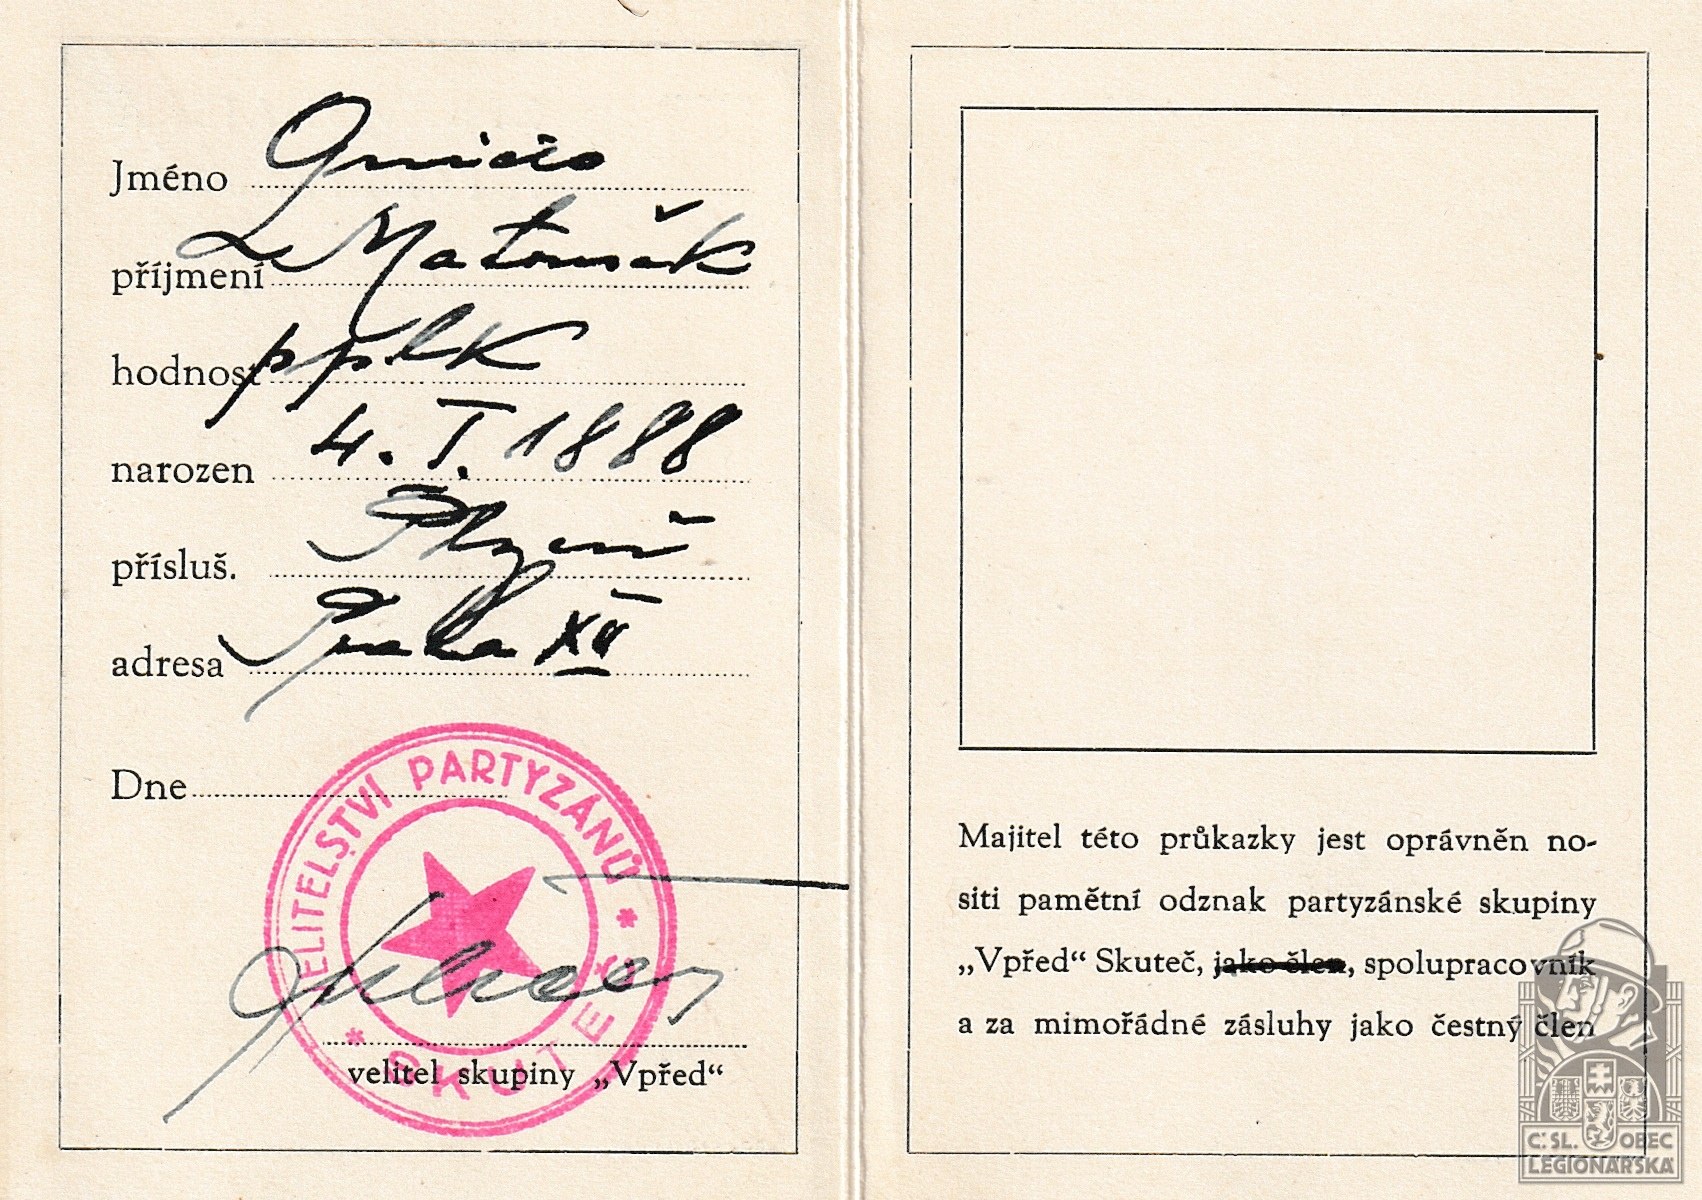 Jméno
příjmení Matoušek
hodnost pplk
narozen 4. I. 1888
přísluš. Plzeň
adresa Praha XV
Dne
VELITELSTVÍ PARTYZÁNŮ
* SKUTEČ *
velitel skupiny „Vpřed“
Majitel této průkazky jest oprávněn no-
siti pamětní odznak partyzánské skupiny
„Vpřed“ Skuteč, jako člen, spolupracovník
a za mimořádné zásluhy jako čestný člen
Č.SL. OBEC
LEGIONÁŘSKÁ